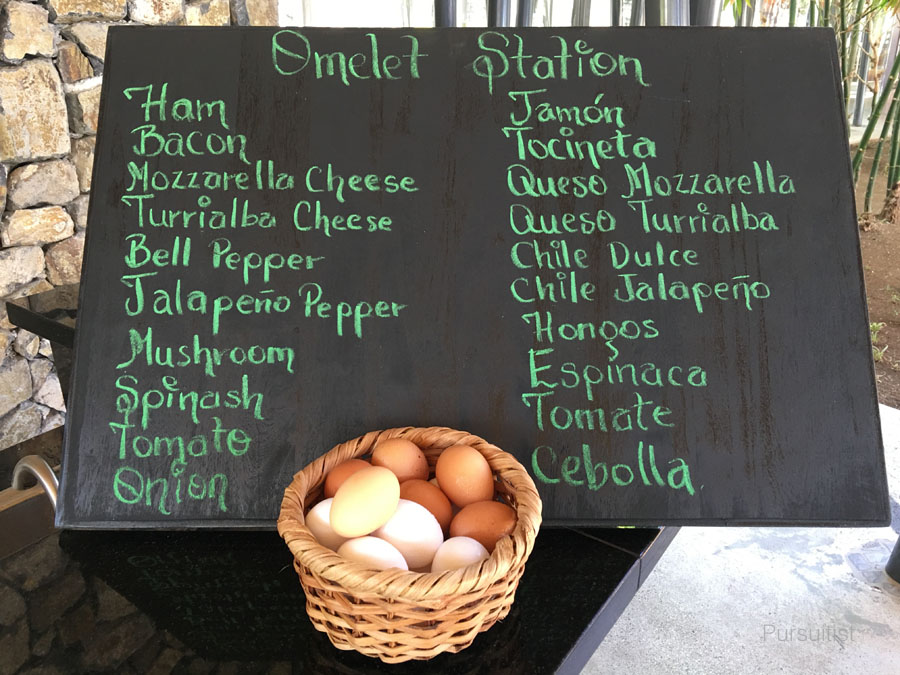 Omelet Station
Ham
Bacon
Mozzarella Cheese
Turrialba Cheese
Bell Pepper
Jalapeño Pepper
Mushroom
Spinash
Tomato
Onion
Jamón
Tocineta
Queso Mozzarella
Queso Turrialba
Chile Dulce
Chile Jalapeño
Hongos
Espinaca
Tomate
Cebolla
Pursuitist